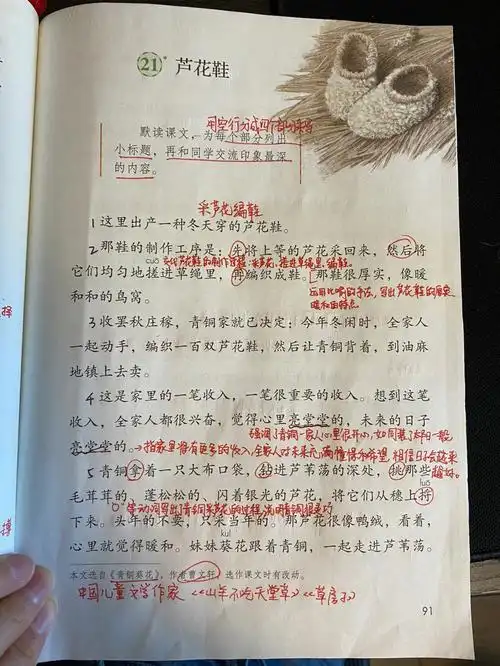 21* 芦花鞋
用空行分成四个部分来写
默读课文，为每个部分列出
小标题，再和同学交流印象最深
的内容。
采芦花编鞋
1这里出产一种冬天穿的芦花鞋。
2那鞋的制作工序是：先将上等的芦花采回来，然后将
cuō
它们均匀地搓进草绳里，再编织成鞋。那鞋很厚实，像暖
和和的鸟窝。
3收罢秋庄稼，青铜家就已决定：今年冬闲时，全家人
一起动手，编织一百双芦花鞋，然后让青铜背着，到油麻
地镇上去卖。
4这是家里的一笔收入，一笔很重要的收入。想到这笔
收入，全家人都很兴奋，觉得心里亮堂堂的，未来的日子
亮堂堂的。
5青铜拿着一只大布口袋，钻进芦苇荡的深处，挑那些
luō
毛茸茸的、蓬松松的、闪着银光的芦花，将它们从穗上捋
下来。头年的不要，只采当年的。那芦花很像鸭绒，看着，
kuí
心里就觉得暖和。妹妹葵花跟着青铜，一起走进芦苇荡。
本文选自《青铜葵花》，作者曹文轩，选作课文时有改动。
中国儿童文学作家 《山羊不吃天堂草》《草房子》
91
择
择